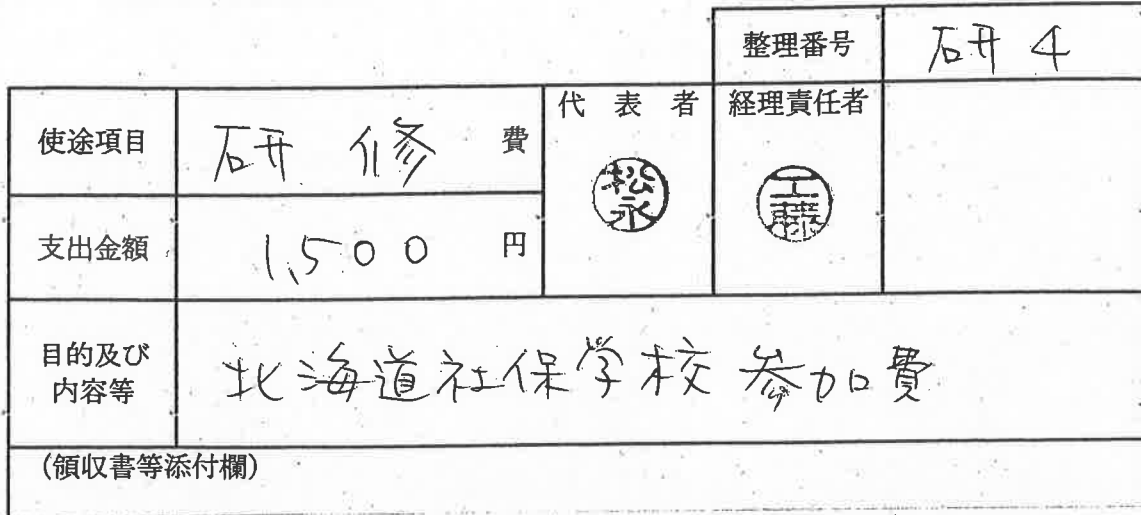 整理番号 研4
使途項目 研修 費
代表者 経理責任者
松永 工藤
支出金額 1,500 円
目的及び
内容等
北海道社保学校 参加費
(領収書等添付欄)